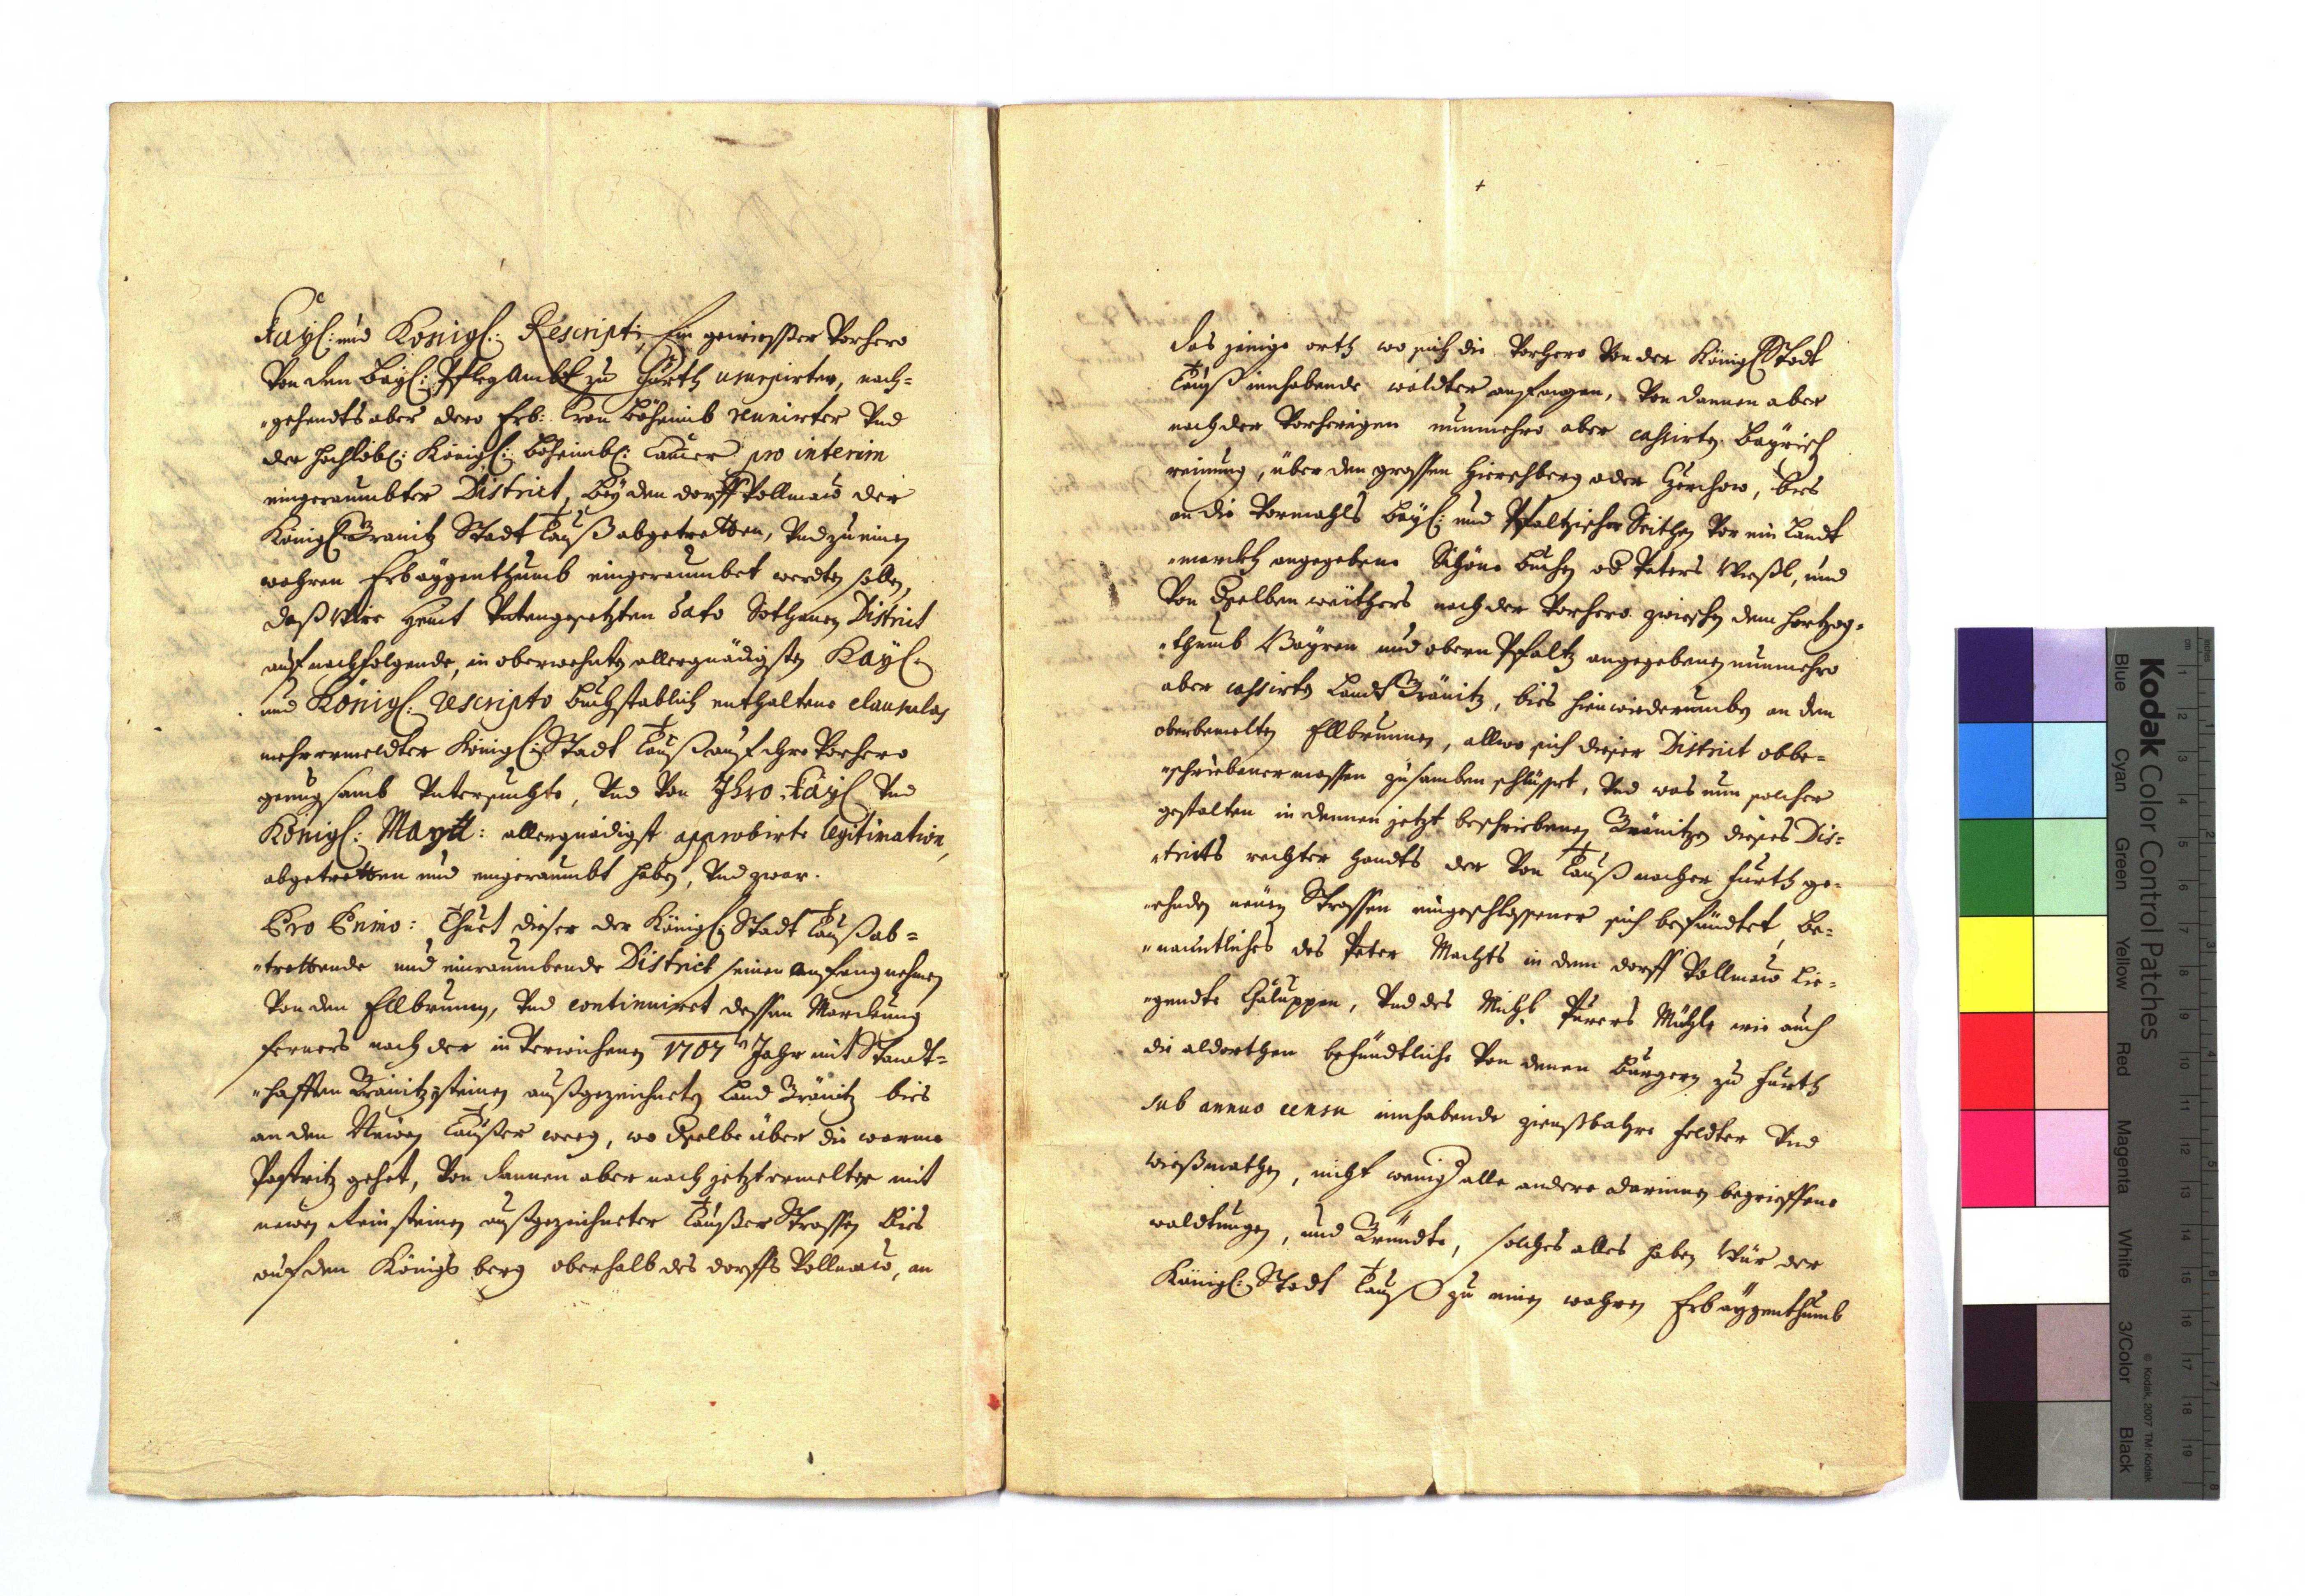 Kayl: und Königl: Rescripti, Ein gewiesser Vorhero
Von dem Bayl: PflegAmbt zu Fürth usurpirter, nach=
gehendts aber dero Erb: Cron Böheimb reunirter Vnd
der hochlöbl: Königl: Böheimbl: Camer pro interim
eingeraumbter District, bey dem dorff Vollmaw der
Königl Gränitz Stadt Tauß abgetretten, Vnd zu einen
wahren Erbaygenthumb eingeraumbet werden solle,
daß Wür heut Vntengesetzten dato Sothanen District
auf nachfolgende, in oberwehnten allergnädigsten Kayl:
und Königl: rescripto buchstablich enthaltene clausulas
mehrermeldter Königl: Stadt Tauß auf ihre Vorhero
genugsamb Vntersuchte, Vnd Von Ihro Kayl Vnd
Königl: Maytt: allergnädigst approbirte legitimation,
abgetretten und eingeraumbt haben, Vnd zwar.
Pro Primo: Thuet dieser der Königl: Stadt Tauß ab=
trettende und einraumbende District seinen anfang nehmen
Von den Ellbrunnen, Vnd continuiret dessen Marckung
ferners nach der in Verwichenen 1707ten Jahr mit Standt=
hafften Gränitzsteinen außgezeichneten Land Gränitz bies
an den Newen Taußer weeg, wo dieselbe über die warme
Pastritz gehet, Von dannen aber nach jetzt ermelter mit
newen Reinsteinen außgezeichneter Taußer Strassen bies
auf den Königs berg oberhalb des dorffs Vollmaw, an
das jenige orth wo sich die Vorhero Von der Königl Stadt
Tauß innhabende wäldter anfangen, Von dannen aber
nach der Vorherigen nunmehro aber cassirten Bayrisch
reinung, über den grossen Hierschberg oder Herchow, bies
an die Vormahls Bayl: und Pfaltzischer Seithen Vor ein Landt
marckh angegebene Schöne buchen od Peters Wießl, und
Von dieselben weithers nach der Vorhero zwischen dem hertzog=
thumb Bayren und obern Pfaltz angegebenen nunmehro
aber cassirten Landt Gränitz, bies hienwiderumben an den
oberbemelten Ellbrunnen, allwo sich dieser District obbe=
schriebener massen zusamben schlüsset, Vnd was nun solcher
gestalten in denen jetzt beschriebenen Gränitzen dieses Dis=
tricts rechter handts der Von Tauß nacher Fürth ge=
ehnden neuen Strassen eingeschlossener sich befündtet, be=
nauntliches des Peter Machts in dem dorff Vollmaw lie=
gendte Chaluppen, Vnd des Michl Pürers Mühle wie auch
die aldorthen befündtliche Von denen Burgern zu Fürth
sub annuo censu innhabende zienßbahre feldter Vnd
wießmathen, nicht wenig alle andere darinnen begrieffene
waldtungen, und Gründte, solches alles haben Wür der
Königl: Stadt Tauß zu einen wahren Erbaygenthumb
Kodak Color Control Patches
Blue Cyan Green Yellow Red Magenta White 3/Color Black
© Kodak, 2007 TM: Kodak
inches 1 2 3 4 5 6 7 8
cm 1 2 3 4 5 6 7 8 9 10 11 12 13 14 15 16 17 18 19